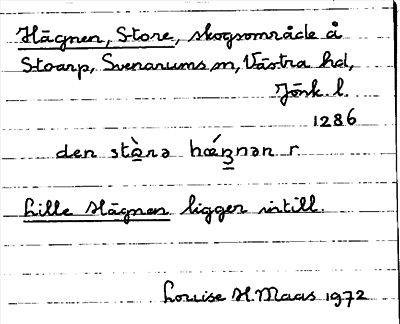 Hägnen, Store, skogsområde å
Stoarp, Svenarums sn, Västra hd,
Jönk. l.
1286
den stò̲rə hǽŋnən r.
Lille Hägnen ligger intill.
Louise H. Maas 1972